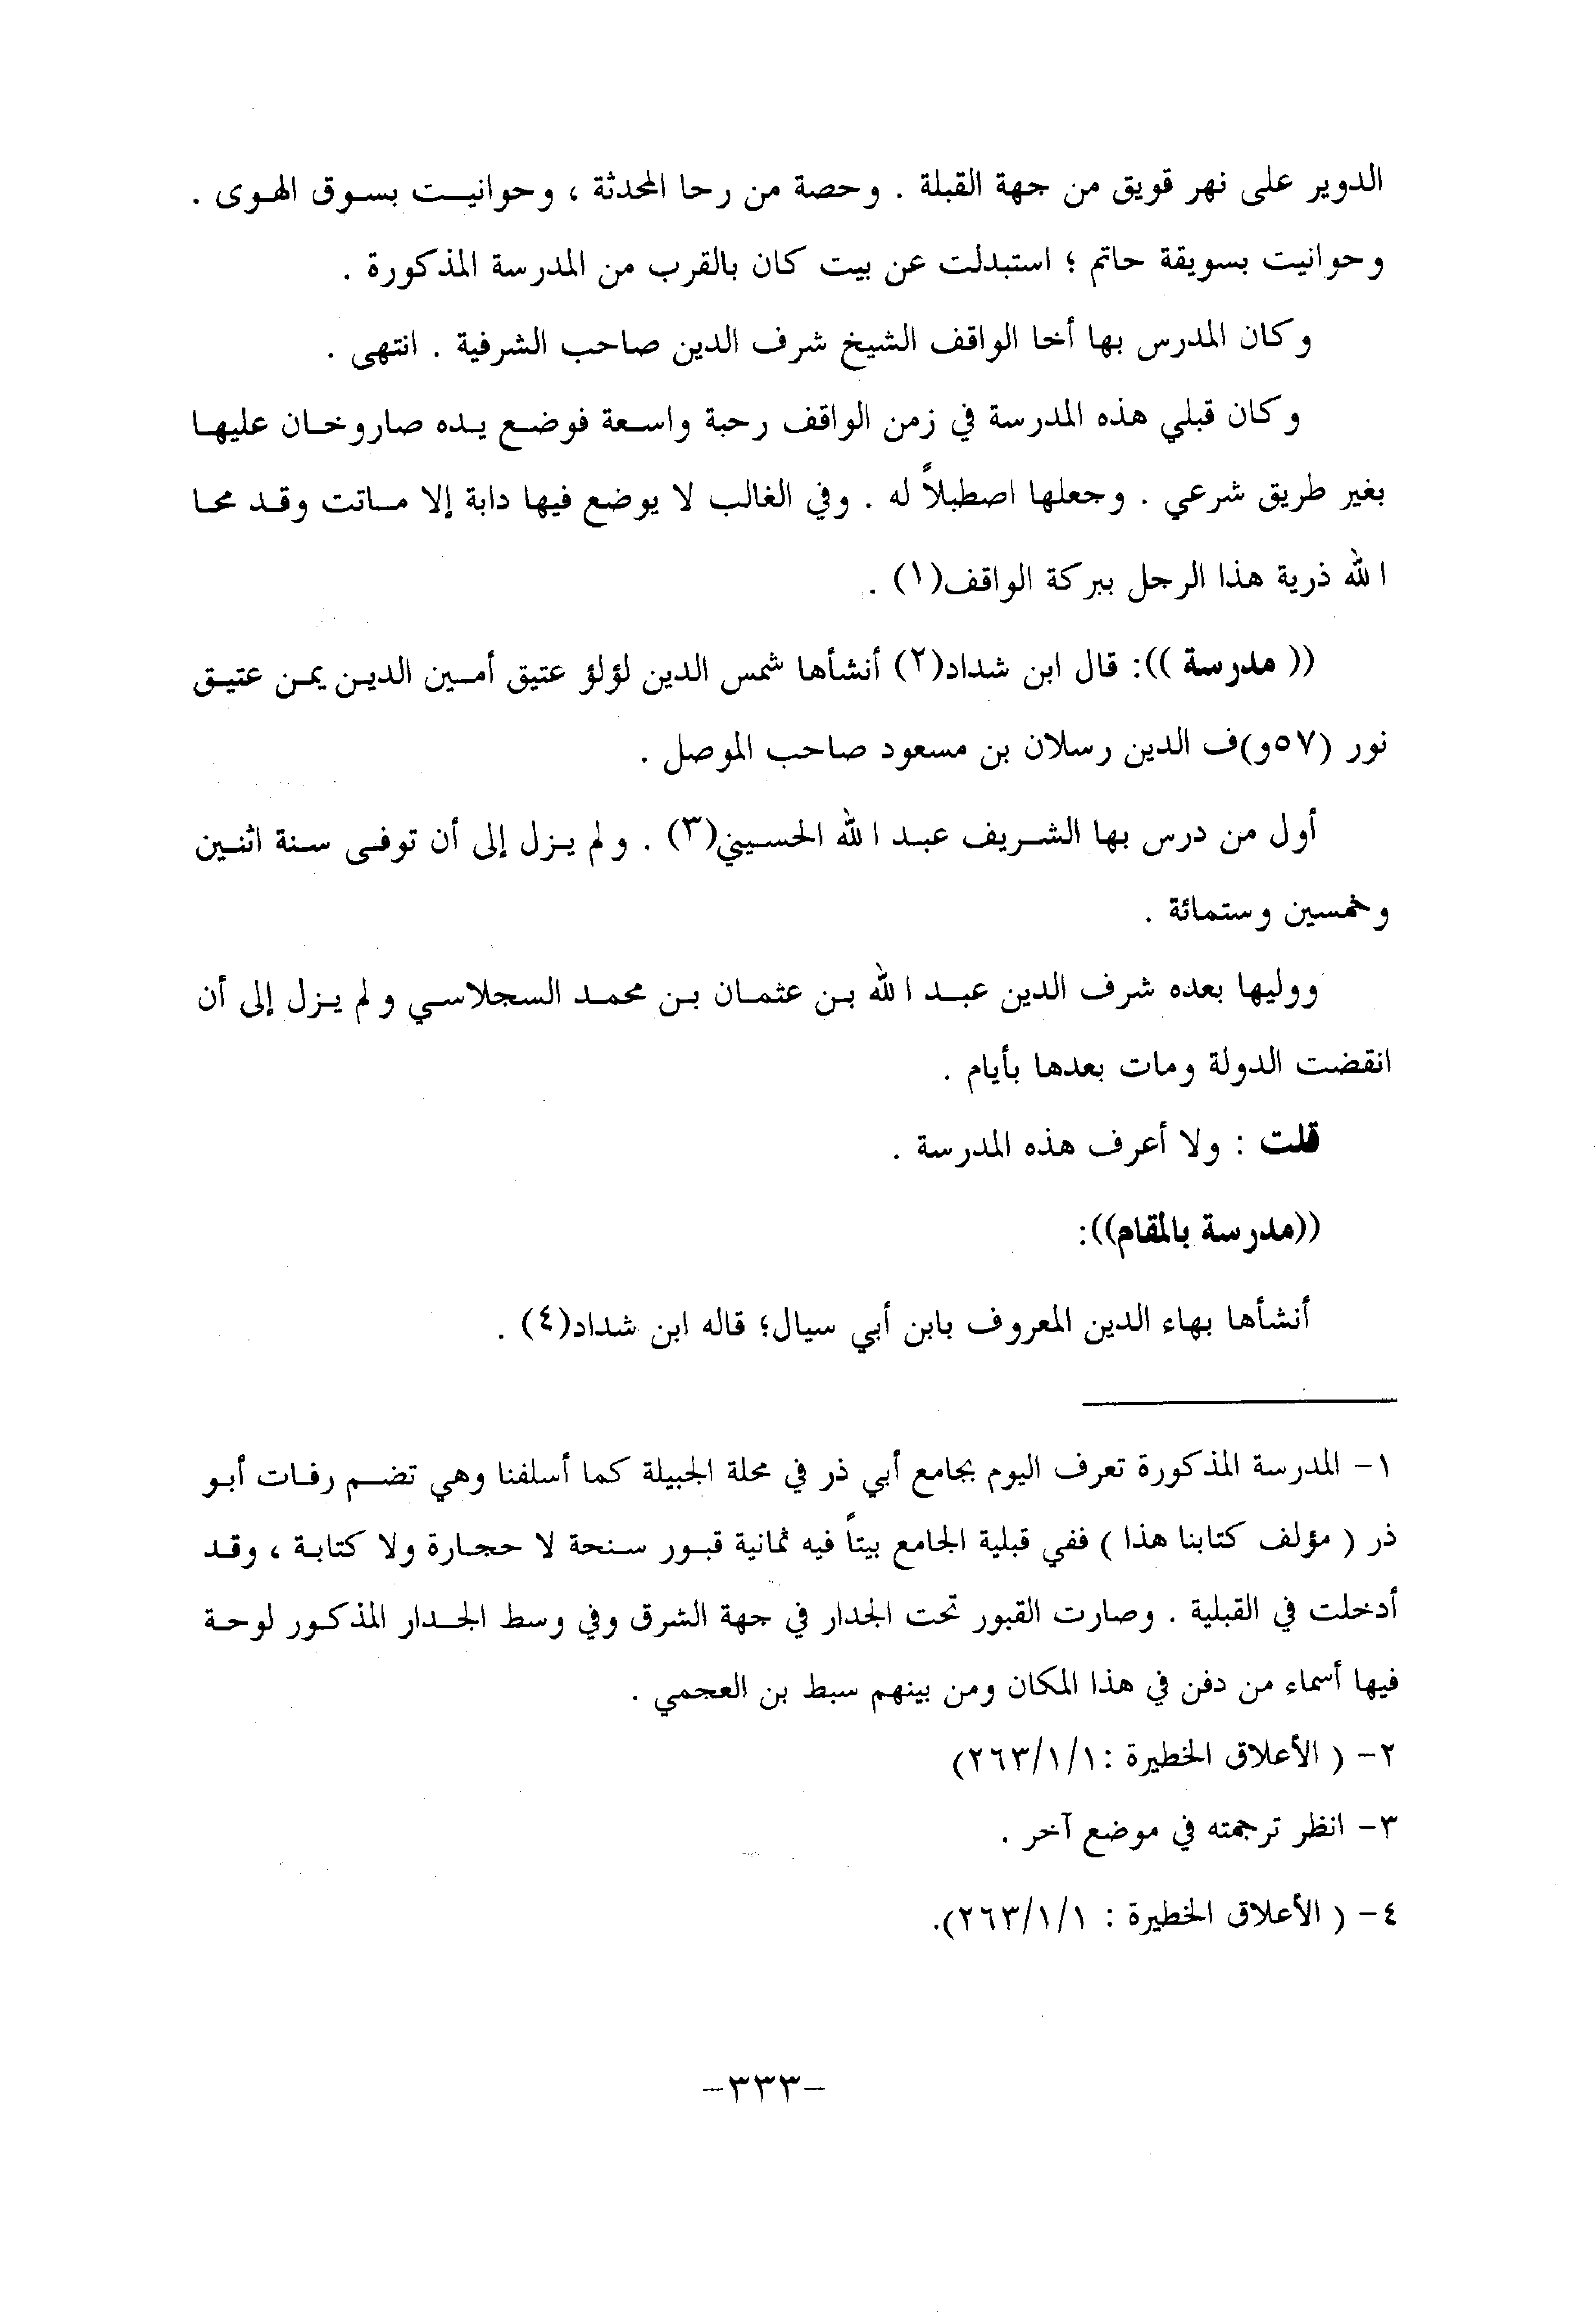 الدوير على نهر قويق من جهة القبلة . وحصة من رحا المحدثة ، وحوانيت بسوق الهوى .
وحوانيت بسويقة حاتم ؛ استبدلت عن بيت كان بالقرب من المدرسة المذكورة .
وكان المدرس بها أخا الواقف الشيخ شرف الدين صاحب الشرفية . انتهى .
وكان قبلي هذه المدرسة في زمن الواقف رحبة واسعة فوضع يده صاروخان عليها
بغير طريق شرعي . وجعلها اصطبلاً له . وفي الغالب لا يوضع فيها دابة إلا ماتت وقد محا
الله ذرية هذا الرجل ببركة الواقف(١) .
(( مدرسة )): قال ابن شداد(٢) أنشأها شمس الدين لؤلؤ عتيق أمين الدين يمن عتيق
نور (٥٧و)ف الدين رسلان بن مسعود صاحب الموصل .
أول من درس بها الشريف عبد الله الحسيني(٣) . ولم يزل إلى أن توفى سنة اثنين
وخمسين وستمائة .
ووليها بعده شرف الدين عبد الله بن عثمان بن محمد السجلاسي ولم يزل إلى أن
انقضت الدولة ومات بعدها بأيام .
قلت : ولا أعرف هذه المدرسة .
((مدرسة بالمقام)):
أنشأها بهاء الدين المعروف بابن أبي سيال؛ قاله ابن شداد(٤) .
١- المدرسة المذكورة تعرف اليوم بجامع أبي ذر في محلة الجبيلة كما أسلفنا وهي تضم رفات أبو
ذر ( مؤلف كتابنا هذا ) ففي قبلية الجامع بيتاً فيه ثمانية قبور سنحة لا حجارة ولا كتابة ، وقد
أدخلت في القبلية . وصارت القبور تحت الجدار في جهة الشرق وفي وسط الجدار المذكور لوحة
فيها أسماء من دفن في هذا المكان ومن بينهم سبط بن العجمي .
٢- ( الأعلاق الخطيرة :٢٦٣/١/١)
٣- انظر ترجمته في موضع آخر .
٤- ( الأعلاق الخطيرة : ٢٦٣/١/١).
-٣٣٣-